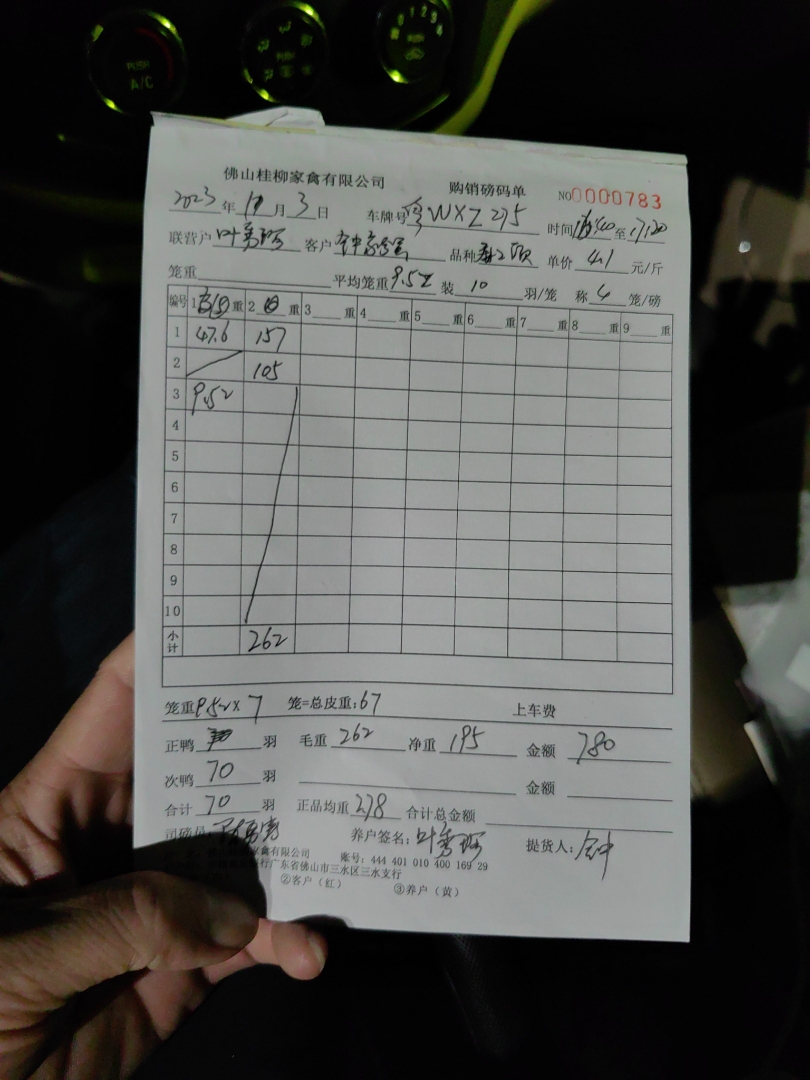 PUSH
A/C
PUSH
0 1 2 3 4
佛山桂柳家禽有限公司 购销磅码单 NO0000783
2023年 月3日 车牌号 WXZ275 时间 至17:20
联营户 叶 客户 品种 单价 4.1 元/斤
笼重 平均笼重9.52 装 10 羽/笼 称 4 笼/磅
编号 1 重 2 重 3 重 4 重 5 重 6 重 7 重 8 重 9 重
1 47.6 157
2 105
3 9.52
4
5
6
7
8
9
10
小计 262
笼重9.52×7 笼=总皮重:67 上车费
正鸭 羽 毛重 262 净重 195 金额 780
次鸭 70 羽 金额
合计 70 羽 正品均重 2.78 合计总金额
司磅员: 养户签名:叶 提货人:
家禽有限公司 账号: 444 401 010 400 169 29
行广东省佛山市三水区三水支行
②客户(红) ③养户(黄)